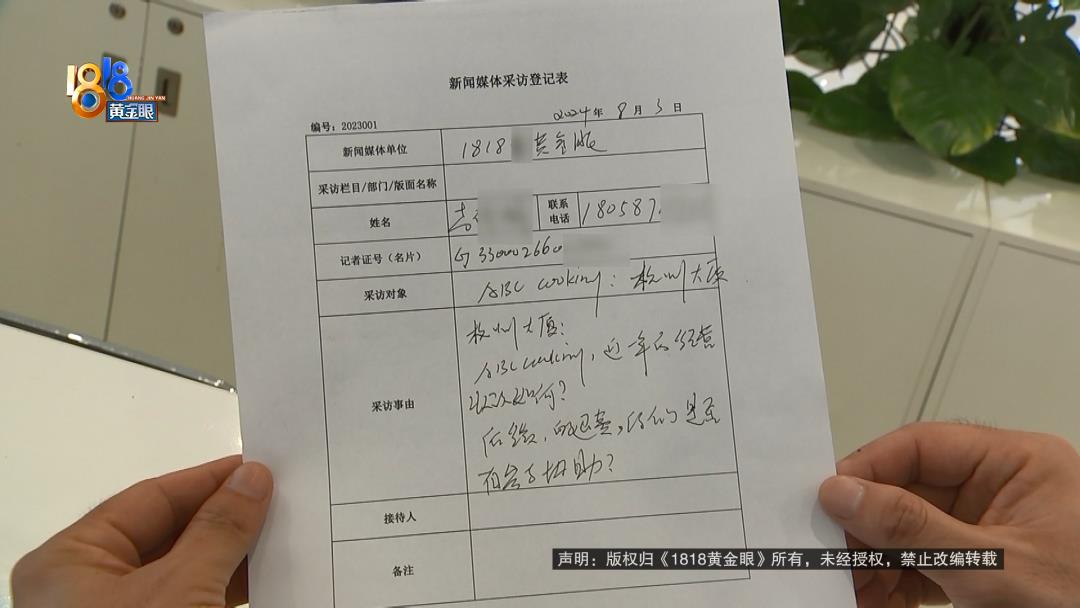 1818
HUANG JIN YAN
黄金眼
新闻媒体采访登记表
编号：2023001
2024年 8月 3日
新闻媒体单位 1818 黄金眼
采访栏目/部门/版面名称
姓名
联系电话 180587
记者证号（名片） G33000266
采访对象 ABC cooking：杭州大厦
采访事由
杭州大厦：
ABC cooking，近年的经营
状况如何？
后续，的退费，你们是否
有给予协助？
接待人
备注
声明：版权归《1818黄金眼》所有，未经授权，禁止改编转载